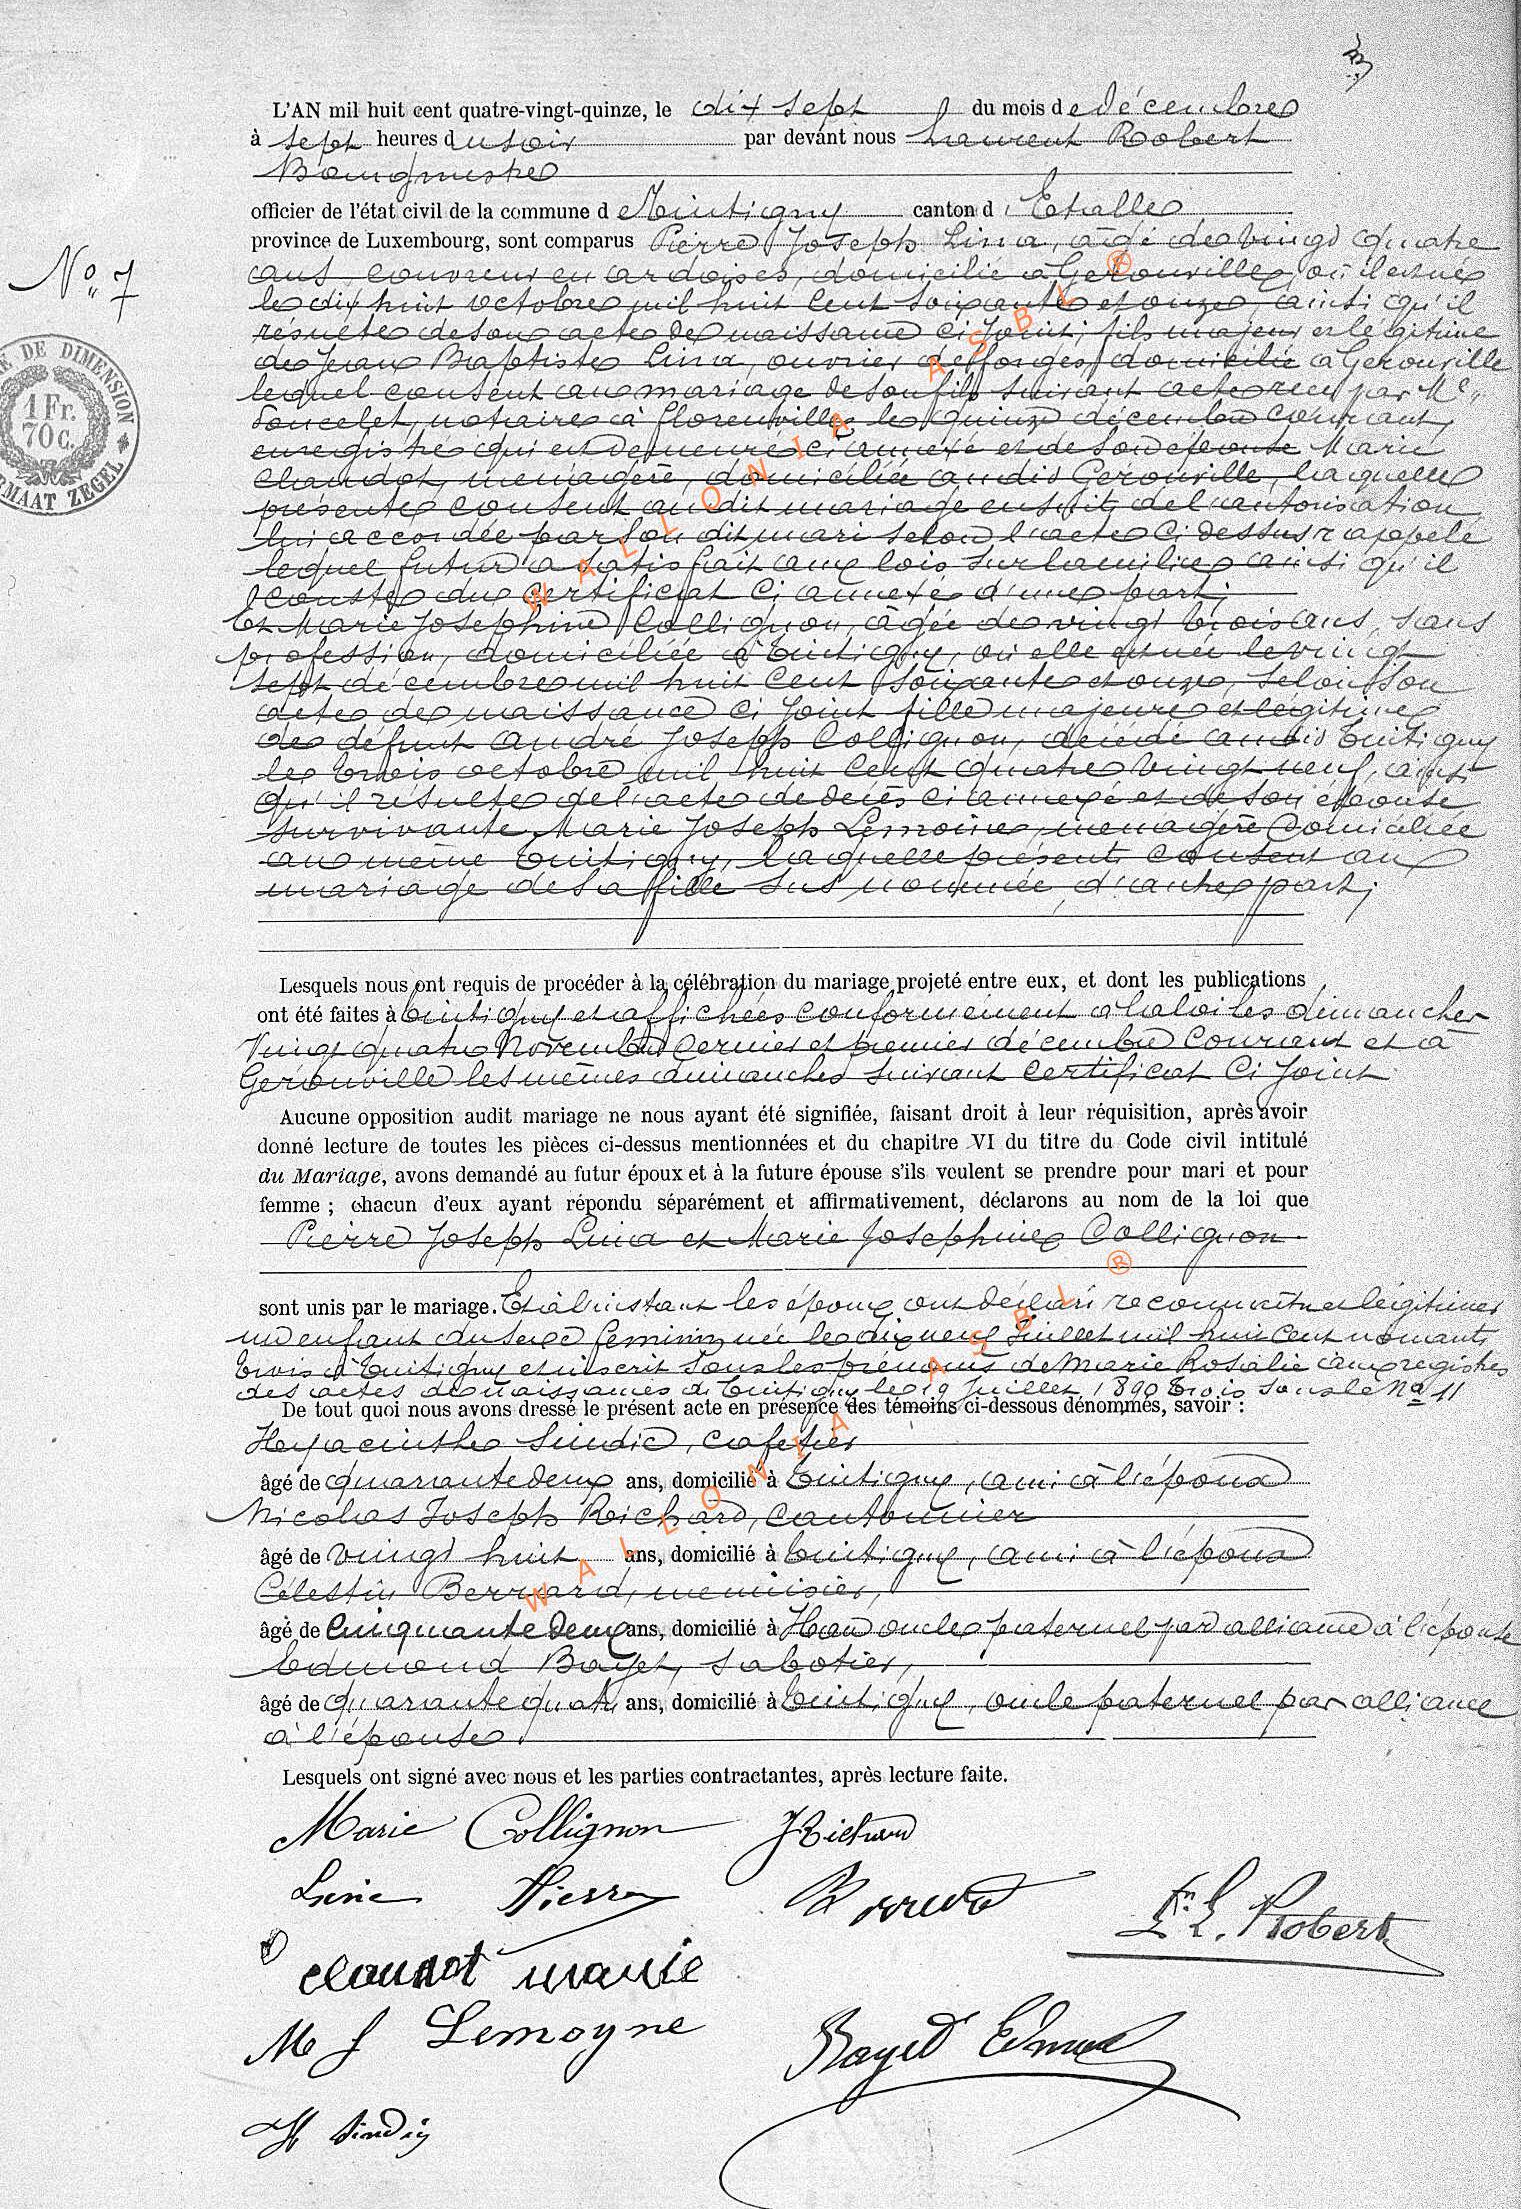 L'AN mil huit cent quatre-vingt-quinze, le dix sept du mois de décembre
à sept heures du soir par devant nous Laurent Robert
Bourgmestre
officier de l'état civil de la commune de Tintigny canton d'Etalle
province de Luxembourg, sont comparus Pierre Joseph Lina, âgé de vingt quatre
N° 7
ans, couvreur en ardoises, domicilié à Gerouville, où il est né
le dix huit octobre mil huit cent soixante et onze, ainsi qu'il
résulte de son acte de naissance ci joint; fils majeur et légitime
de Jean Baptiste Lina, ouvrier de forges, domicilié à Gerouville
lequel consent au mariage de son fils suivant acte recu par Me
notaire à Florenville le quinze décembre courant,
enregistré qui est demeuré ci annexé et de son épouse Marie
Chaudot, ménagère, domiciliée audit Gerouville, laquelle
présente consent audit mariage ensuite de l'autorisation
lui accordée par son dit mari selon l'acte ci dessus rappelé
lequel futur a satisfait aux lois sur la milice ainsi qu'il
conste du certificat ci annexé d'une part;
Et Marie Josephine Collignon, âgée de vingt trois ans, sans
profession, domiciliée à Tintigny, où elle est née le vingt
sept décembre mil huit cent soixante et onze, selon son
acte de naissance ci joint fille majeure et légitime
de défunt André Joseph Collignon, décédé audit Tintigny
le trois octobre mil huit cent quatre vingt neuf, ainsi
qu'il résulte de l'acte de décès ci annexé et de son épouse
survivante Marie Joseph Lemoine, menagère domiciliée
au même Tintigny, laquelle présente consent au
mariage de sa fille sus nommée, d'autre part;
Lesquels nous ont requis de procéder à la célébration du mariage projeté entre eux, et dont les publications
ont été faites à Tintigny et affichées conformément à la loi les dimanches
Vingt quatre Novembre dernier et premier décembre courant et à
Gerouville les mêmes dimanches suivant certificat ci joint
Aucune opposition audit mariage ne nous ayant été signifiée, faisant droit à leur réquisition, après avoir
donné lecture de toutes les pièces ci-dessus mentionnées et du chapitre VI du titre du Code civil intitulé
du Mariage, avons demandé au futur époux et à la future épouse s'ils veulent se prendre pour mari et pour
femme ; chacun d'eux ayant répondu séparément et affirmativement, déclarons au nom de la loi que
Pierre Joseph Lina et Marie Josephine Collignon
sont unis par le mariage. Et à l'instant les époux ont déclaré reconnaître et légitimer
un enfant du sexe feminin née le dix neuf Juillet mil huit cent nonante
trois à Tintigny et inscrit sous les prénoms de Marie Rosalie aux registres
des actes de naissances de Tintigny le 19 Juillet 1890 trois sous le No 11
De tout quoi nous avons dressé le présent acte en présence des témoins ci-dessous dénommés, savoir :
Hyacinthe Sindic, cafetier
âgé de quarante deux ans, domicilié à Tintigny, ami à l'époux
Nicolas Joseph Richard, cantonnier
âgé de vingt huit ans, domicilié à Tintigny, ami à l'époux
Célestin Berrard, menuisier,
âgé de cinquante deux ans, domicilié à Han oncle paternel par alliance à l'épouse
Edmond Bayet, sabotier,
âgé de quarante quatre ans, domicilié à Tintigny, oncle paternel par alliance
à l'épouse.
Lesquels ont signé avec nous et les parties contractantes, après lecture faite.
Marie Collignon JRichard
Lina Pierre
L. Robert
chaudot marie
M J Lemoyne
Bayet Edmond
H Sindic
DE DIMENSION
1 Fr.
70 C.
FORMAAT ZEGEL
WALLONIA ASBL ®
WALLONIA ASBL ®